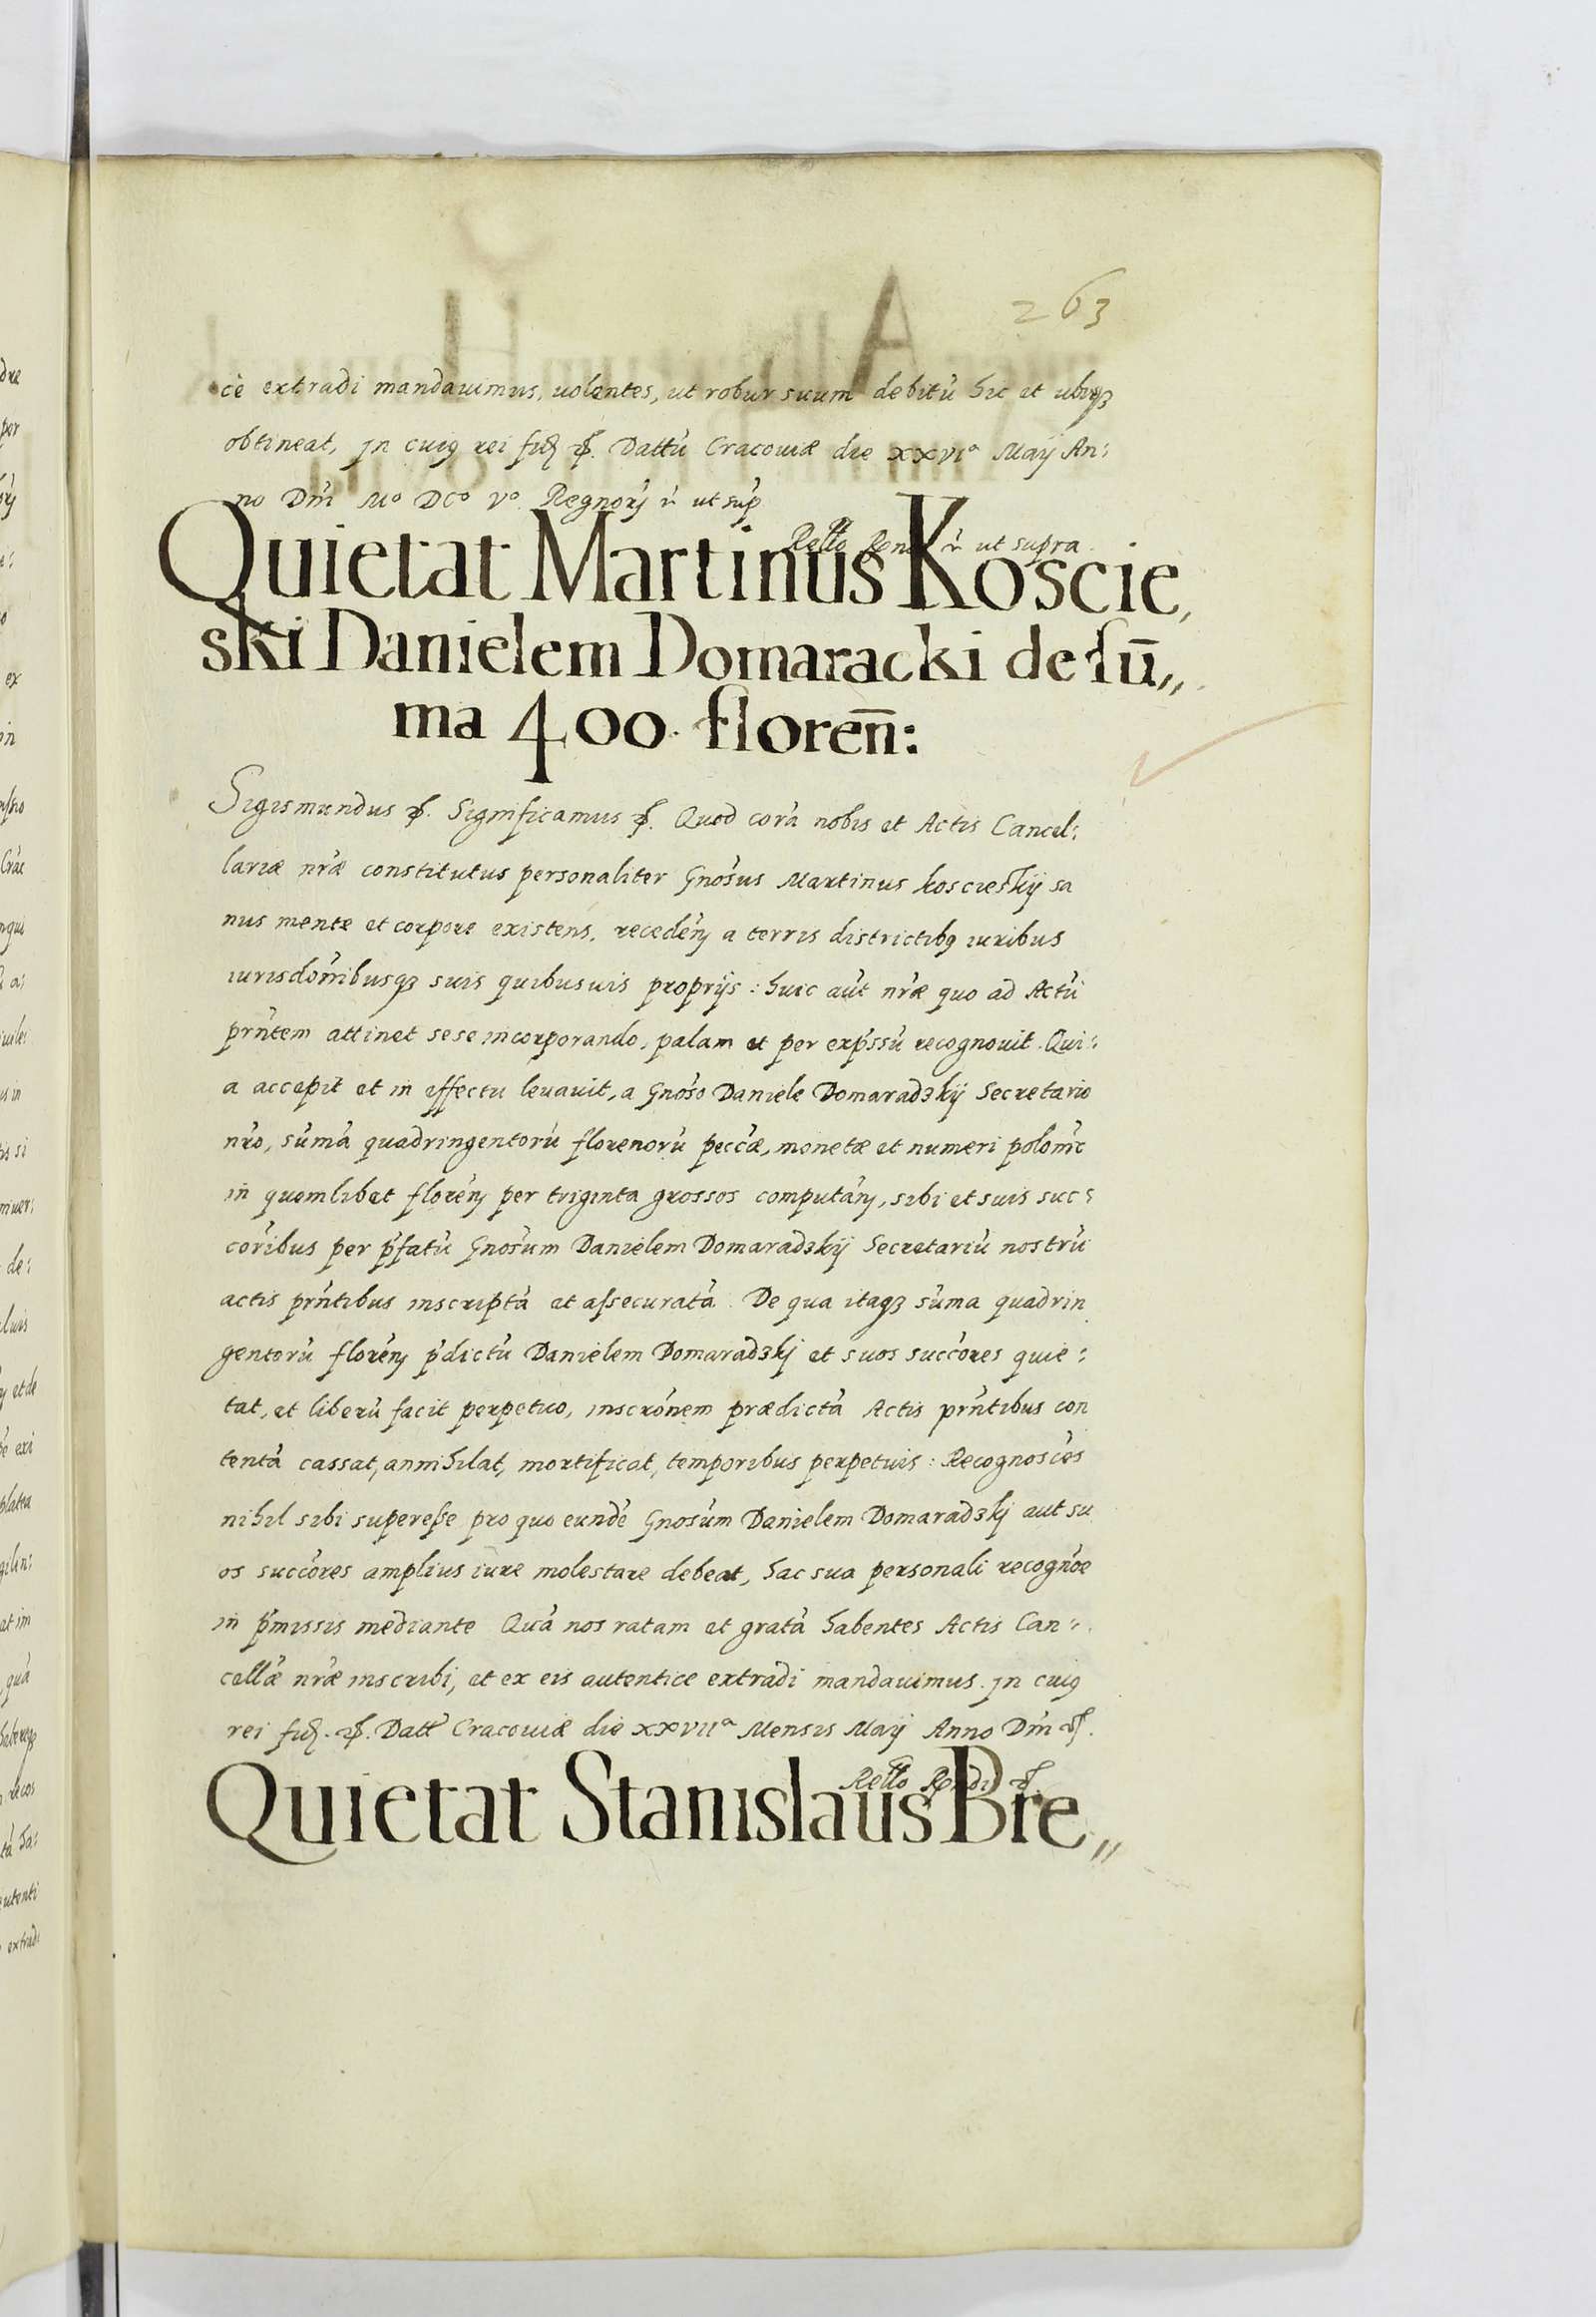 263
cè extradi mandavimus, uolentes, ut robur suum debitũ hic et ubiqȝ
obtineat, Jn cuiꝯ rei fid. ꝛc. Datũ Cracouiæ die XXVIᵃ Maij An:
no Dm̃ Mº DCº Vº. Regnorũ ñ ut supr
Rel̃lo Rend ñ ut supra.
Quietat Martinus Koscie,
ski Danielem Domaracki de sũ,,
ma 400. floreñ:
Sigismundus ꝛc. Significamus ꝛc. Quod corã nobis et Actis Cancel:
lariæ nr̃æ constitutus personaliter Gnõsus Martinus koscieskij sa
nus mente et corpore existens, recedeñ a terris districtibꝯ iuribus
iurisdoñibusqȝ suis quibusuis proprijs: huic aũt nr̃æ quo ad Actũ
prñtem attinet sese incorporando, palam et per exp̃ssũ recognouit. Qui:
a accepit et in effectu leuauit, a Gnõso Daniele Domaradȝkij Secretario
nr̃o, sũmã quadringentorũ florenorũ pecc̃æ, monetæ et numeri polonĩc
in quemlibet floreñ per triginta grossos computañ, sibi et suis suc:
corĩbus per p̃fatũ Gnosũm Danielem Domaradȝkij Secretariũ nostrũ
actis prñtibus inscriptã et assecuratã. De qua itaqȝ sũma quadrin
gentorũ floreñ p̃dictũ Danielem Domaradȝkj et suos succõres quie:
tat, et liberũ facit perpetuo, inscrõnem prædictã Actis prñtibus con
tentã cassat, annihilat, mortificat, temporibus perpetuis: Recognoscẽs
nihil sibi superesse pro quo eundẽ Gnosũm Danielem Domaradȝkj aut su
os succõres amplius iure molestare debeat, hac sua personali recognõe
in p̃missis mediante Quã nos ratam et gratã habentes Actis Can:
cellæ̃ nr̃æ inscribi, et ex eis autentice extradi mandauimus. Jn cuiꝯ
rei fid. ꝛc. Datt̃ Cracouiæ die XXVIIᵃ Mensis Maij Anno Dm̃ ꝛc.
Rel̃lo ꝛc.
Quietat Stanislaus Bre,,